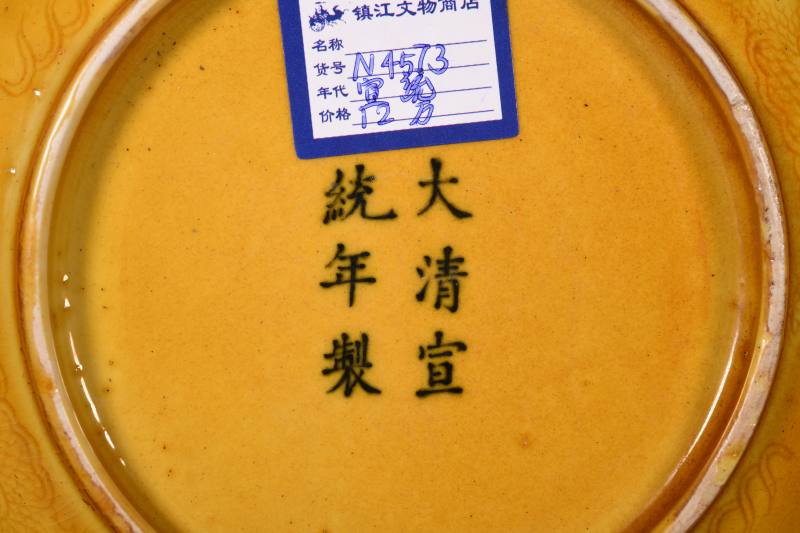 镇江文物商店
名称
货号 N4573
年代 宣统
价格 12万
大清宣
統年製